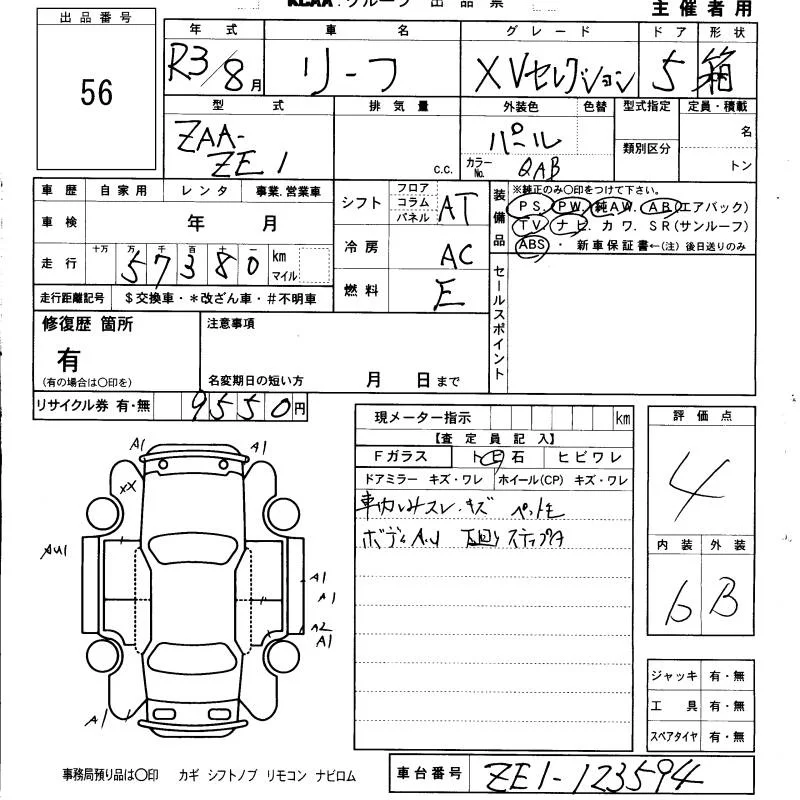 KCAA グループ 出品票
主催者用
出品番号
56
年式 車名 グレード ドア 形状
R3/8月 リーフ XVセレクション 5 箱
型式 排気量 外装色 色替 型式指定 定員・積載
ZAA-ZE1 c.c. パール 類別区分 名
カラーNo. QAB トン
車歴 自家用 レンタ 事業.営業車
車検 年 月
走行 十万 万 千 百 十 一 km マイル
57380
走行距離記号 $交換車・*改ざん車・#不明車
シフト フロア コラム パネル AT
冷房 AC
燃料 E
装備品 ※純正のみ〇印をつけて下さい。
PS. PW. 純AW. AB(エアバック)
TV. ナビ. カワ. SR(サンルーフ)
ABS ・ 新車保証書←(注)後日送りのみ
セールスポイント
修復歴 箇所
有
(有の場合は〇印を)
注意事項
名変期日の短い方 月 日まで
リサイクル券 有・無 9550円
現メーター指示 km
【査定員記入】
Fガラス ト石 ヒビワレ
ドアミラー キズ・ワレ ホイール(CP) キズ・ワレ
車内しみスレ・キズ ペット毛
ボディA.U 下回り
評価点
4
内装 外装
6 B
A1 A1
XX
AU1
A1
A1
A2
A1
A1
ジャッキ 有・無
工具 有・無
スペアタイヤ 有・無
事務局預り品は〇印 カギ シフトノブ リモコン ナビロム
車台番号 ZE1-123594